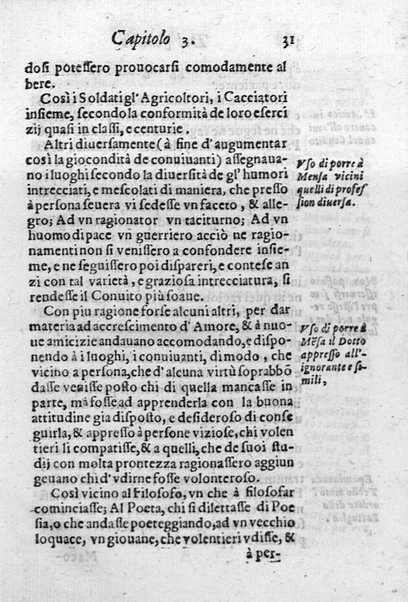 Capitolo 3. 31
dosi potessero prouocarsi comodamente al
bere.
Così i Soldati gl' Agricoltori, i Cacciatori
insieme, secondo la conformità de loro eserci
zij quasi in classi, e centurie.
Altri diuersamente (à fine d' augumentar
così la giocondità de conuiuanti) assegnaua-
no i luoghi secondo la diuersità de gl' humori
intrecciati, e mescolati di maniera, che presso
à persona seuera vi sedesse vn faceto, & alle-
gro; Ad vn ragionator vn taciturno; Ad vn
huomo di pace vn guerriero acciò ne ragio-
namenti non si venissero a confondere insie-
me, e ne seguissero poi dispareri, e contese an
zi con tal varietà, e graziosa intrecciatura, si
rendesse il Conuito più soaue.
Vso di porre à
Mensa vicini
quelli di profes
sion diuersa.
Con piu ragione forse alcuni altri, per dar
materia ad accrescimento d' Amore, & à nuo-
ue amicizie andauano accomodando, e dispo-
nendo à i luoghi, i conuiuanti, di modo, che
vicino a persona, che d' alcuna virtù soprabbõ
dasse venisse posto chi di quella mancasse in
parte, mà fosse ad apprenderla con la buona
attitudine gia disposto, e desideroso di conse
guirla, & appresso à persone viziose, chi volen
tieri li compatisse, & a quelli, che de suoi stu-
dij con molta prontezza ragionassero aggiun
geuano chi d' vdirne fosse volonteroso.
Vso di porre à
Mẽsa il Dotto
appresso all'-
ignorante e so-
mili,
Così vicino al Filosofo, vn che à filosofar
cominciasse; Al Poeta, chi si dilettasse di Poe
sia, o che andasse poeteggiando, ad vn vecchio
loquace, vn giouane, che volentieri vdisse, &
à per-